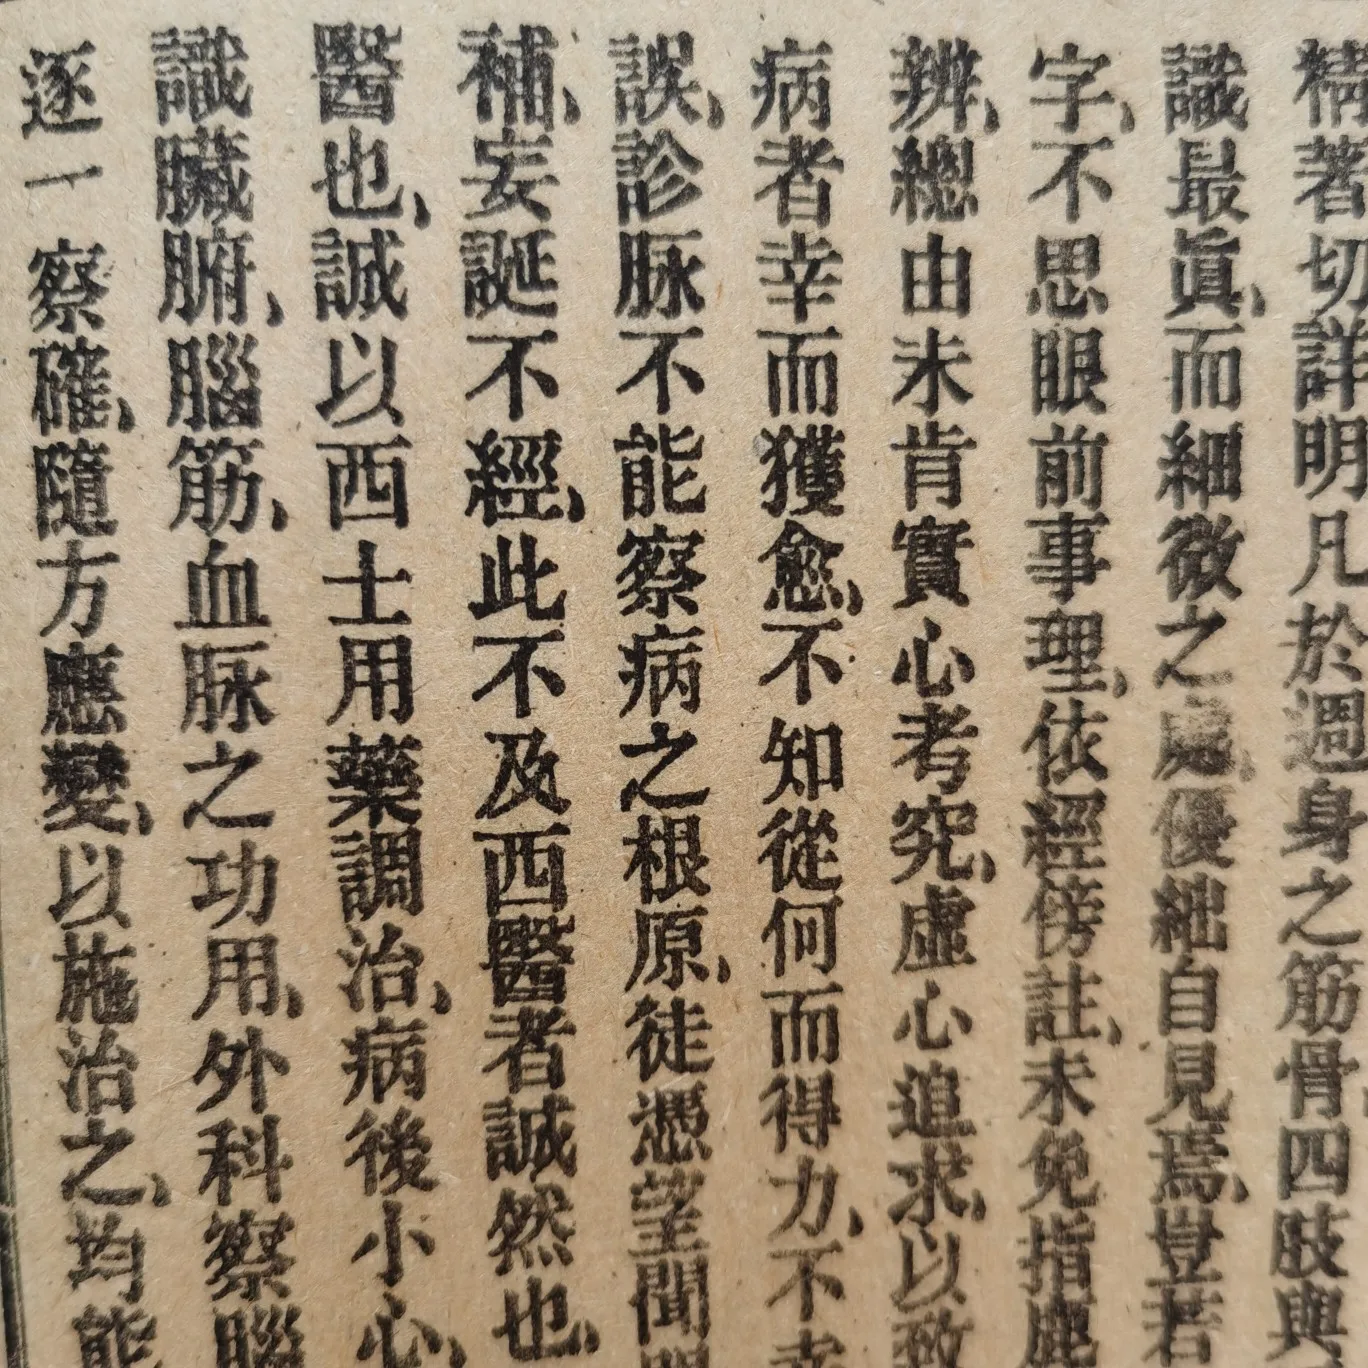 精著切詳明凡於週身之筋骨四肢與
識最眞、而細微之處、優絀自見焉、豈若
字、不思眼前事理、依經傍註、未免指鹿
辨、總由未肯實心考究、虛心追求、以致
病者幸而獲愈、不知從何而得力、不幸
誤、診脉不能察病之根原、徒憑望聞問
補、妄誕不經、此不及西醫者誠然也、
醫也、誠以西士用藥調治、病後小心、
識臟腑、腦筋、血脉之功用、外科察腦
逐一察確、隨方應變、以施治之、均能